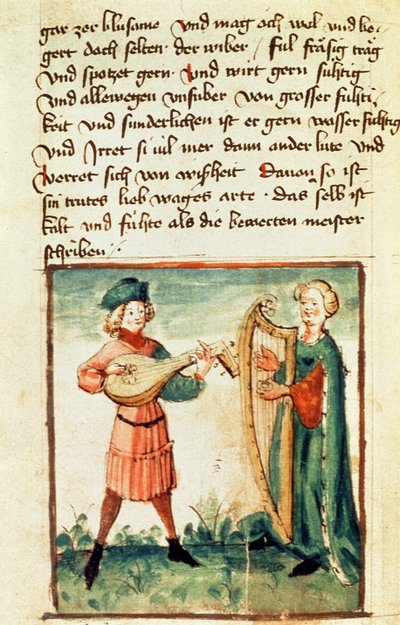 gar zerblusame und mag och wol und be-
gert doch selten der wiber / ful fräsig träg
und spotzet gern und wirt gern suhtig
und allewegen unsuber von grosser fuhti-
keit und sunderlichen ist er gern wasser suhtig
und Irret si vil mer dann ander lute und
verret sich von wißheit Davon so ist
sin trutes lieb wages arte · das selb ist
kalt und fuhte als die bewerten meister
schriben /.